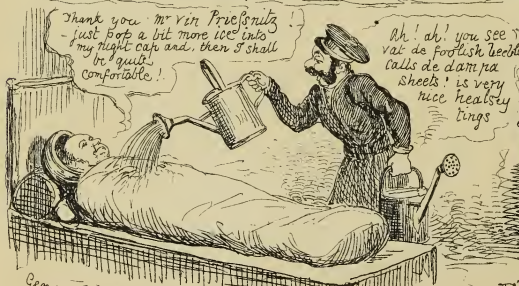 Thank you Mr Vin Priefsnitz !
just pop a bit more ice into
my night cap and, then I shall
be quite
comfortable !
Ah! ah! you see
vat de foolish
calls de dampa
sheets! is very
nice
tings